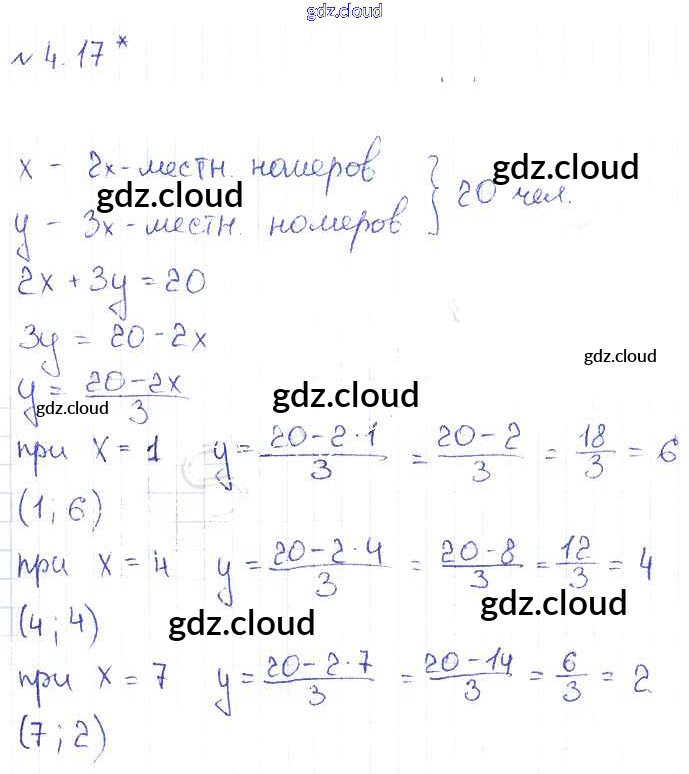 gdz.cloud
№ 4.17*
x - 2х-местн. номеров } 20 чел.
gdz.cloud gdz.cloud
y - 3х-местн. номеров
2x + 3y = 20
3y = 20 - 2x
gdz.cloud
y = (20 - 2x)/3
gdz.cloud gdz.cloud
при x = 1 y = (20 - 2·1)/3 = (20 - 2)/3 = 18/3 = 6
(1; 6)
при x = 4 y = (20 - 2·4)/3 = (20 - 8)/3 = 12/3 = 4
(4; 4)
gdz.cloud gdz.cloud
при x = 7 y = (20 - 2·7)/3 = (20 - 14)/3 = 6/3 = 2
(7; 2)